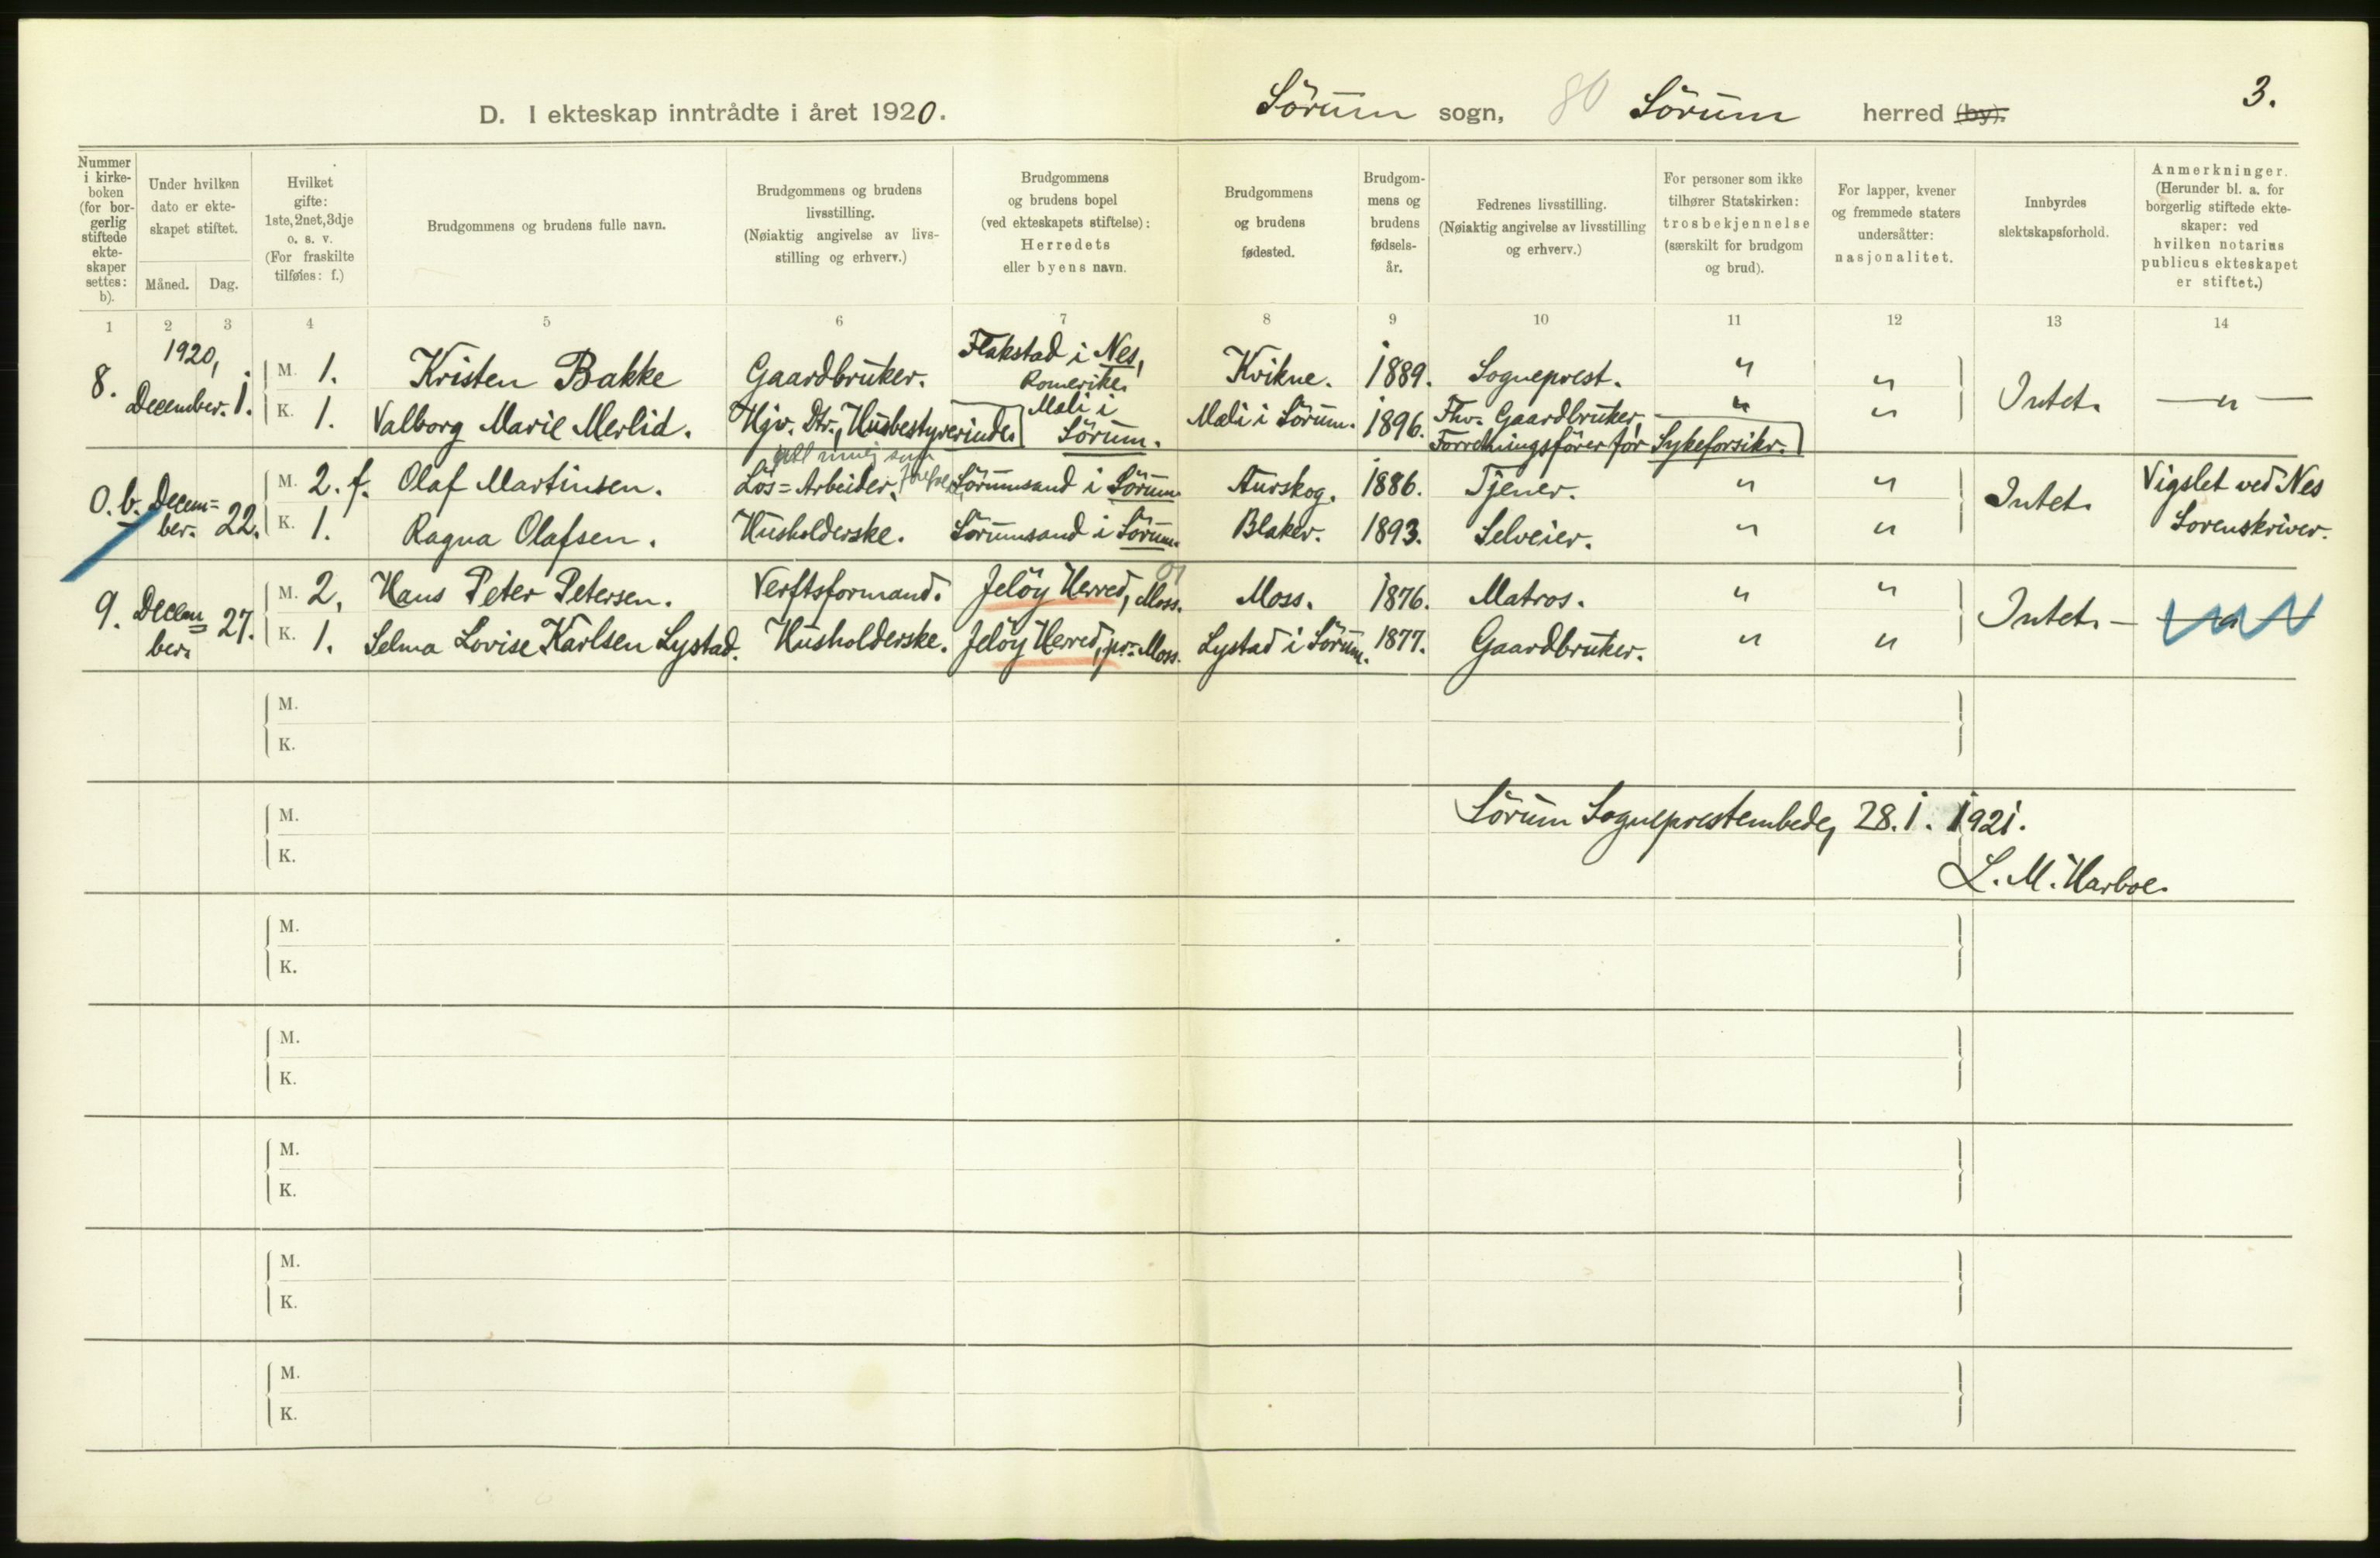 D. I ekteskap inntrådte i året 1920.
Sörum sogn, 80 Sörum herred (by).
3.
Nummer i kirke-boken (for bor-gerlig stiftede ekte-skaper settes: b).
Under hvilken dato er ekte-skapet stiftet.
Måned. Dag.
Hvilket gifte: 1ste, 2net, 3dje o. s. v. (For fraskilte tilføies: f.)
Brudgommens og brudens fulle navn.
Brudgommens og brudens livsstilling. (Nøiaktig angivelse av livs-stilling og erhverv.)
Brudgommens og brudens bopel (ved ekteskapets stiftelse): Herredets eller byens navn.
Brudgommens og brudens fødested.
Brudgom-mens og brudens fødsels-år.
Fedrenes livsstilling. (Nøiaktig angivelse av livsstilling og erhverv.)
For personer som ikke tilhører Statskirken: trosbekjennelse (særskilt for brudgom og brud).
For lapper, kvener og fremmede staters undersåtter: nasjonalitet.
Innbyrdes slektskapsforhold.
Anmerkninger. (Herunder bl. a. for borgerlig stiftede ekte-skaper: ved hvilken notarius publicus ekteskapet er stiftet.)
1 2 3 4 5 6 7 8 9 10 11 12 13 14
1920,
8. December. 1.
M. 1. Kristen Bakke Gaardbruker. Flakstad i Nes, Romerike. Kvikne. 1889. Sogneprest. " "
K. 1. Valborg Marie Merlid. Hjv. Dtr., Husbestyrerinde. Mæli i Sörum. Mæli i Sörum. 1896. Fhv. Gaardbruker, Forretningsfører for Sykeforsikr. " "
Intet. — " —
0. b. Decem=ber. 22.
M. 2. f. Olaf Martinsen. Lös=Arbeider. Sörumsand i Sörum. Aurskog. 1886. Tjener. " "
K. 1. Ragna Olafsen. Husholderske. Sörumsand i Sörum. Blaker. 1893. Selveier. " "
Intet. Vigslet ved Nes Sorenskriver.
9. Decem=ber. 27.
M. 2. Hans Peter Petersen. Verftsformand. Jelöy Herred, Moss. Moss. 1876. Matros. " "
K. 1. Selma Lovise Karlsen Lystad. Husholderske. Jelöy Herred, pr. Moss. Lystad i Sörum. 1877. Gaardbruker. " "
Intet. — " —
M.
K.
M.
K.
Sörum Sogneprestembede, 28. 1. 1921.
L. M. Harboe.
M.
K.
M.
K.
M.
K.
M.
K.
M.
K.